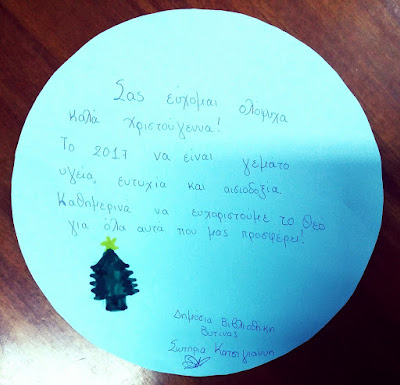 Σας εύχομαι ολόψυχα
Καλά Χριστούγεννα!
Το 2017 να είναι γεμάτο
υγεία, ευτυχία και αισιοδοξία.
Καθημερινά να ευχαριστούμε το Θεό
για όλα αυτά που μας προσφέρει!
Δημόσια Βιβλιοθήκη
Βυτίνας
Σωτηρία Κατσιγιάννη